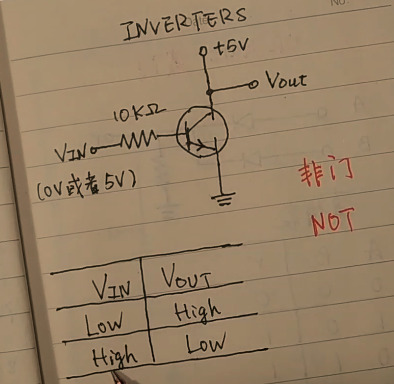 INVERTERS
+5V
Vout
10KΩ
VIN
(0V或者5V)
非门
NOT
VIN VOUT
Low High
High Low